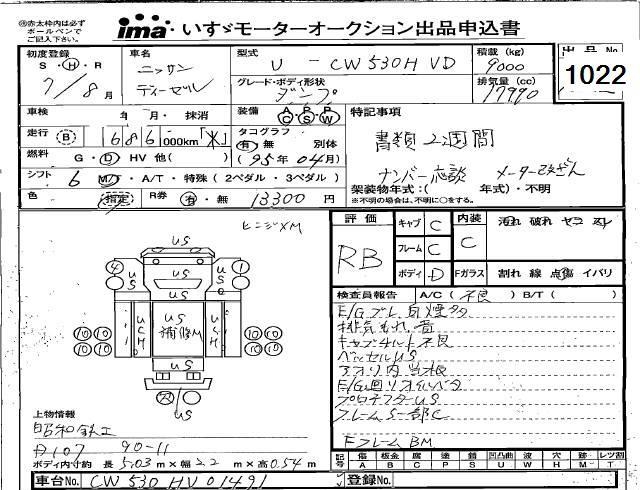 ㊟赤太枠内は必ず
ボールペンで
ご記入下さい。
ima いすゞモーターオークション出品申込書
初度登録 車名 型式 積載 (kg) 出品 No
S・H・R ニッサン U - CW530HVD 9000 1022
7/8月 ディーゼル グレード・ボディ形状 排気量 (cc)
ダンプ 17990
車検 年 月・抹消 装備 A/C P/S P/W 特記事項
走行 B 686,000km「木」 タコグラフ 有・無 別体 書類2週間
燃料 G・D・HV 他( ) (95年04月) ナンバー応談 メーター改ざん
シフト 6 M/T・A/T・特殊 (2ペダル・3ペダル) 架装物年式:( 年式)・不明
色 指定 R券 有・無 13300円 ※不明の場合は、不明に○をする。
評価 キャブ C 内装 汚れ 破れ ヤニ スレ
RB フレーム C C
ボディ D Fガラス 割れ 線 点傷 イバリ
検査員報告 A/C (不良) B/T ( )
E/Gブレ 白煙多
排気もれ音
キャブチルト不良
ベッセルUS
アオリ内当板
E/G廻りオイルハタ
プロテクターUS
フレームS一部C
FフレームBM
US
4 US US US 1
US
UCH US 補修M UCH
10 10 10 10
10 10 10 10
US
上物情報
昭和鉄工
90-11
ボディ内寸約 長 5.03m×幅 2.2m×高 0.54m
記号 傷 板金 腐 塗 錆 凹凸曲 波 穴 跡 レツ割
A B C P S U W H M T
車台No. CW530HV01491 登録No.